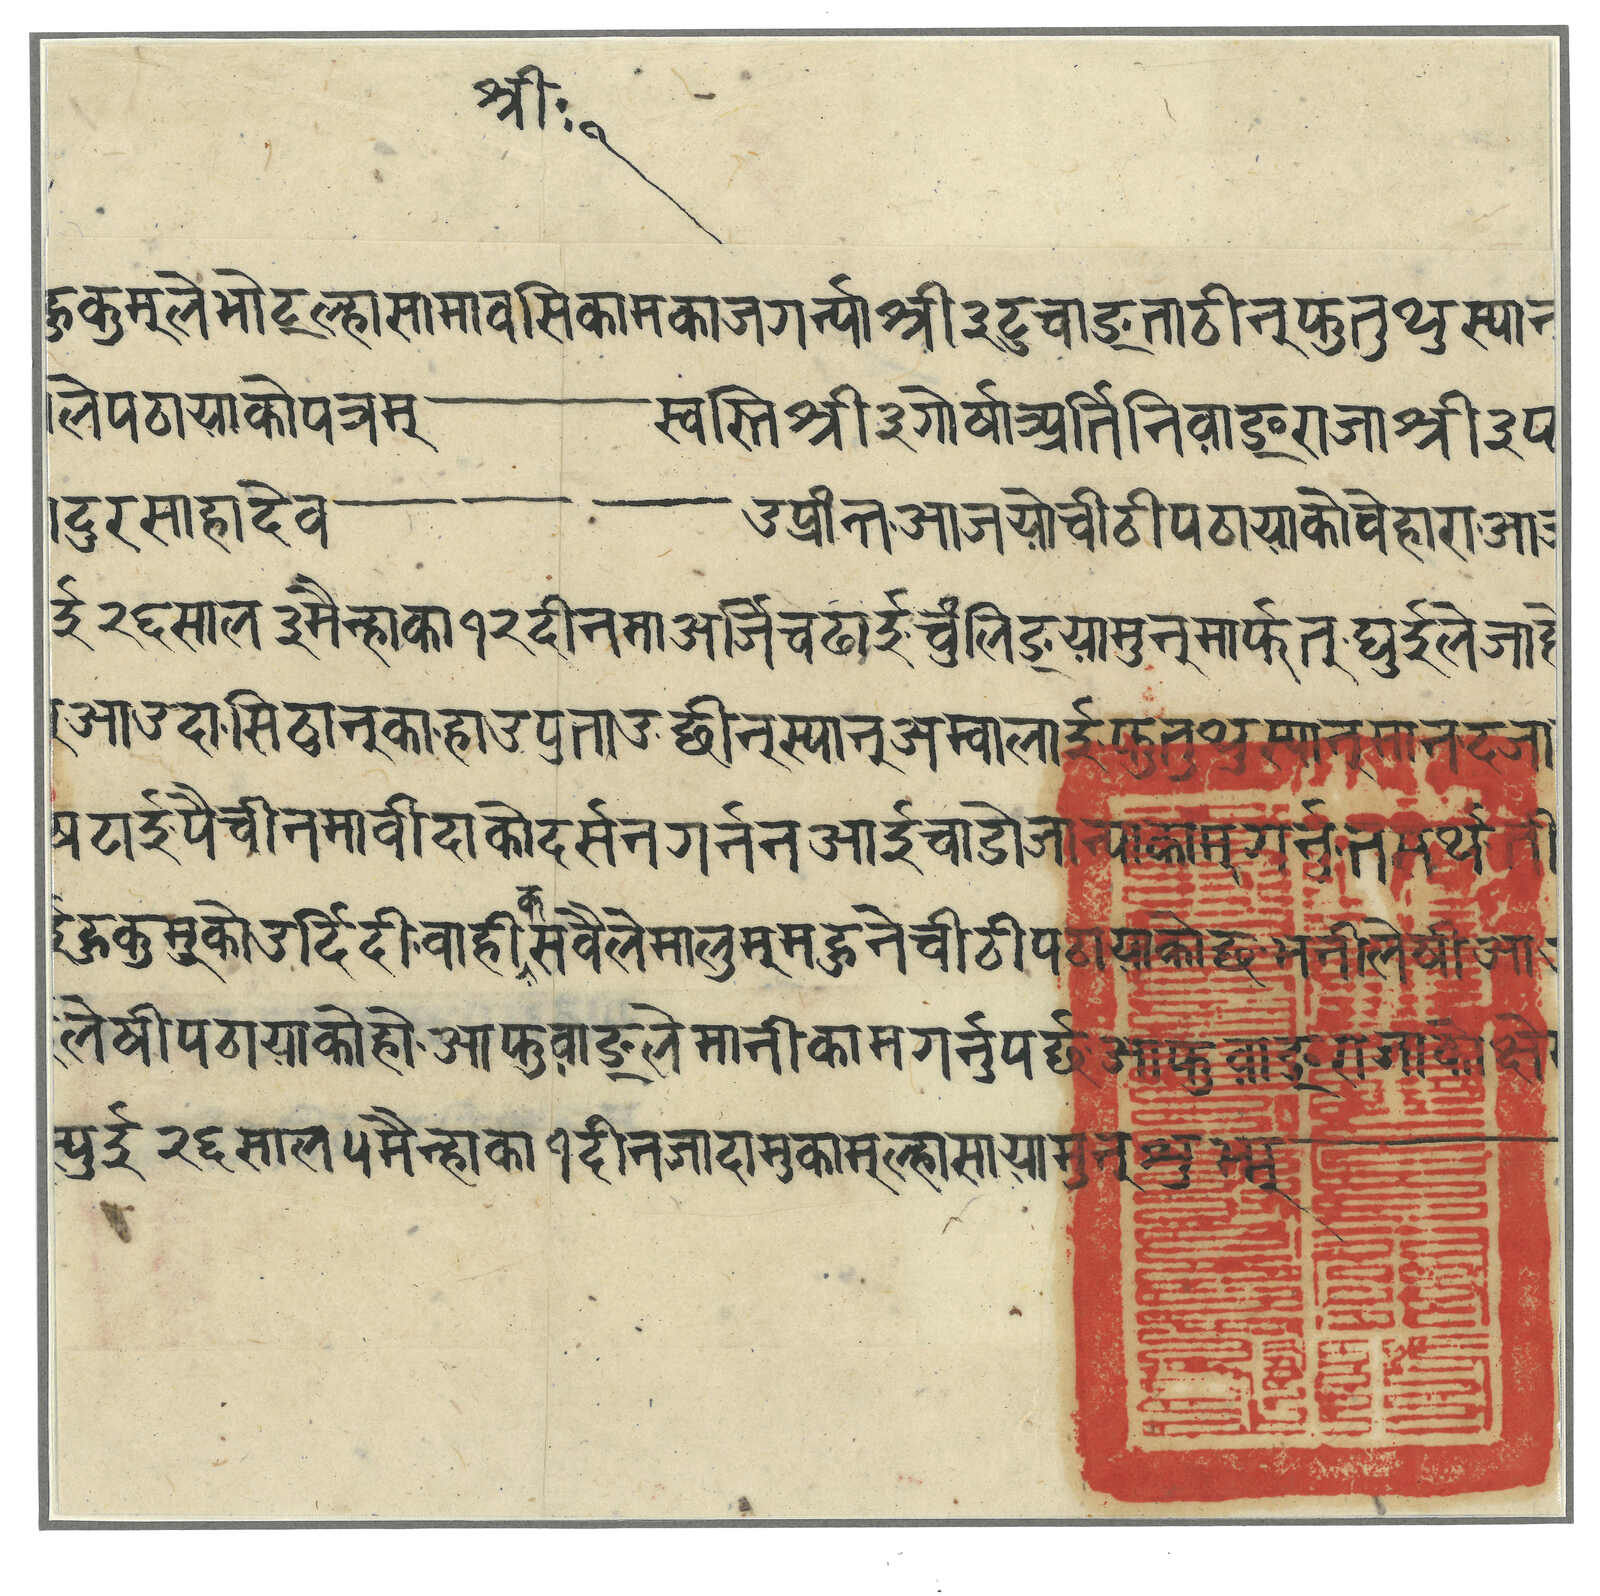 श्री: १
हुकुम्ले भोट् ल्हासामा वसि कामकाज गर्न्या श्री ३ टुचाङ् ताठीन् फुतुथुस्यान
ले पठायाको पत्रम् — स्वस्ति श्री ३ गोर्षा प्रर्तिनि वाङ् राजा श्री ३
ादुर साहादेव — — — उप्रान्त आज यो चीठी पठायाको वेहारा आज
ई २६ साल ३ मैन्हाका १२ दीनमा अर्जि चढाई चुंलिङ् यामुन् मार्फत् घुईले जाहे
आउदा सिठान् काहाउपुताउ छीन्स्यान् अम्वालाई फुतुथुस्यान् मानदजा
षटाई पैचीनमा वीदाको दर्सन गर्न न आई चाडो जान्या काम् गर्नु तसर्थ ती
ई हुकुमुको उर्दि दी वाहीक सवैले मालुम् महुने चीठी पठायाको छ भनी लेषी आ
लेषी पठायाको हो आफु वाङ्ले मानी काम गर्नु पर्छ आफु वाङ् राजाको
घुई २६ साल ५ मैन्हाका १ दीन जादा मुकाम् ल्हासा यामुन् शुभम् —